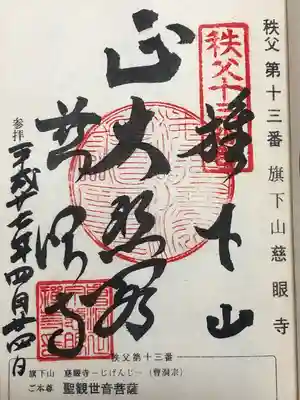 秩父 第十三番 旗下山慈眼寺
秩父十三番
旗下山
正大悲殿
慈眼寺
参拝 平成 年四月廿四日
秩父第十三番
旗下山 慈眼寺―じげんじ―(曹洞宗)
ご本尊 聖観世音菩薩